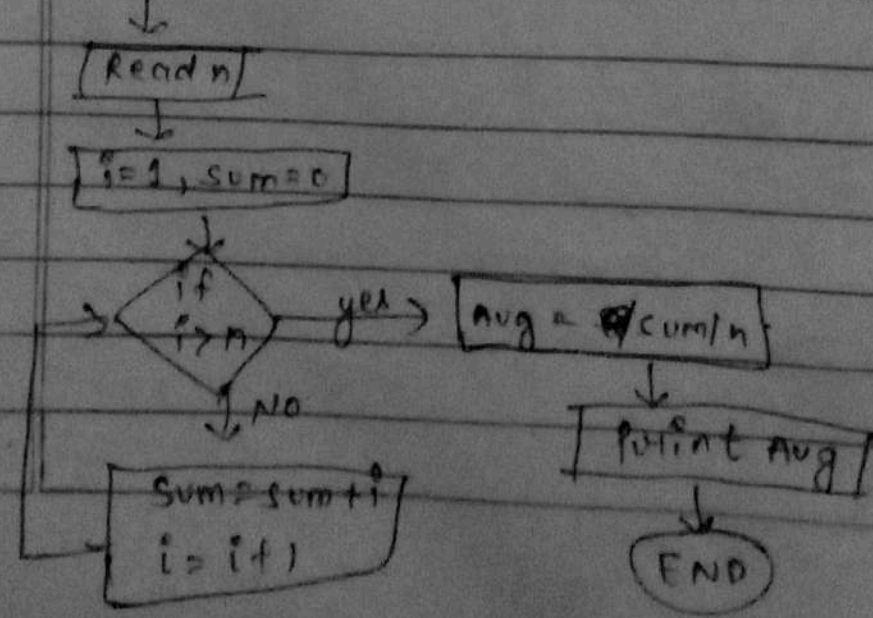 Read n
i=1, sum=0
if
i>n
yes
Avg = sum/n
NO
Print Avg
sum=sum+i
i=i+1
END